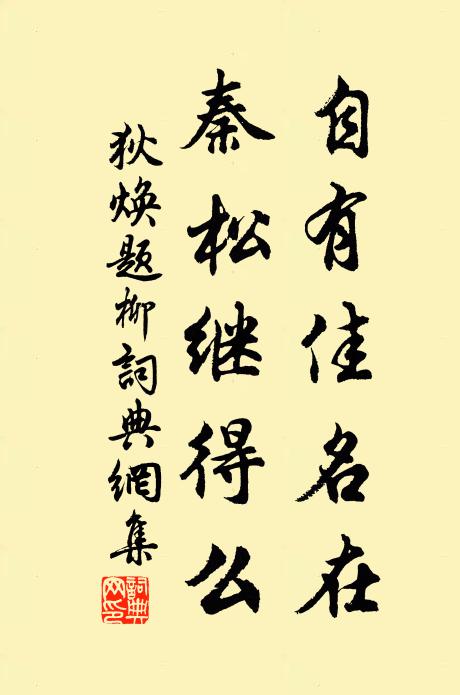 自有佳名在
秦松继得么
狄焕题柳詞典網集
詞典网印